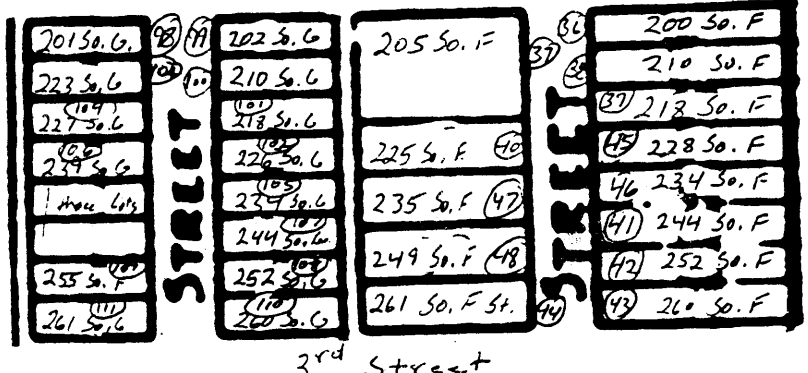 201 So. G. 98
223 So. G 102
104
227 So. G
106
239 So G
three lots
109
255 So. G
111
261 So. G
STREET
99 202 So. G
100 210 So. G
101
218 So. G
226 So. G
105
234 So. G
107
244 So. G
108
252 So. G
110
260 So. G
205 So. F 39
225 So. F. 40
235 So. F 47
249 So. F 48
261 So. F St. 44
STREET
36 200 So. F
38 210 So. F
37 218 So. F
45 228 So. F
46 234 So. F
41 244 So. F
42 252 So. F
43 260 So. F
3rd Street